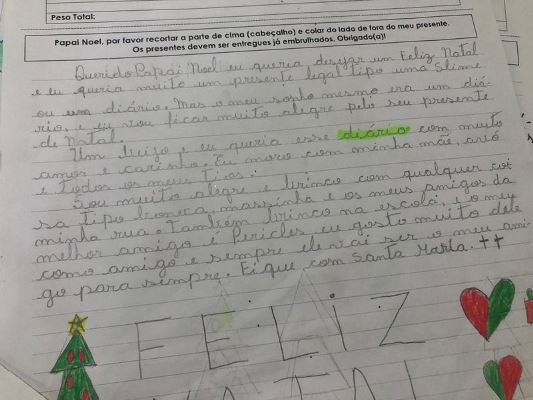 Peso Total:
Papai Noel, por favor recortar a parte de cima (cabeçalho) e colar do lado de fora do meu presente.
Os presentes devem ser entregues já embrulhados. Obrigado(a)!
Querido Papai Noel eu queria desejar um Feliz Natal
e eu queria muito um presente legal tipo uma Slime
ou um diário. Mas o meu sonho mesmo era um diá-
rio, e eu vou ficar muito alegre pelo seu presente
de Natal.
Um beijo e eu queria esse diário com muito
amor e carinho. Eu moro com minha mãe, avó
e todos os meus tios.
Sou muito alegre e brinco com qualquer coi
sa tipo boneca, massinha e os meus amigos da
minha rua. Também brinco na escola, e o meu
melhor amigo é Péricles eu gosto muito dele
como amigo e sempre ele vai ser o meu ami-
go para sempre. Fique com Santa Maria. ††
FELIZ